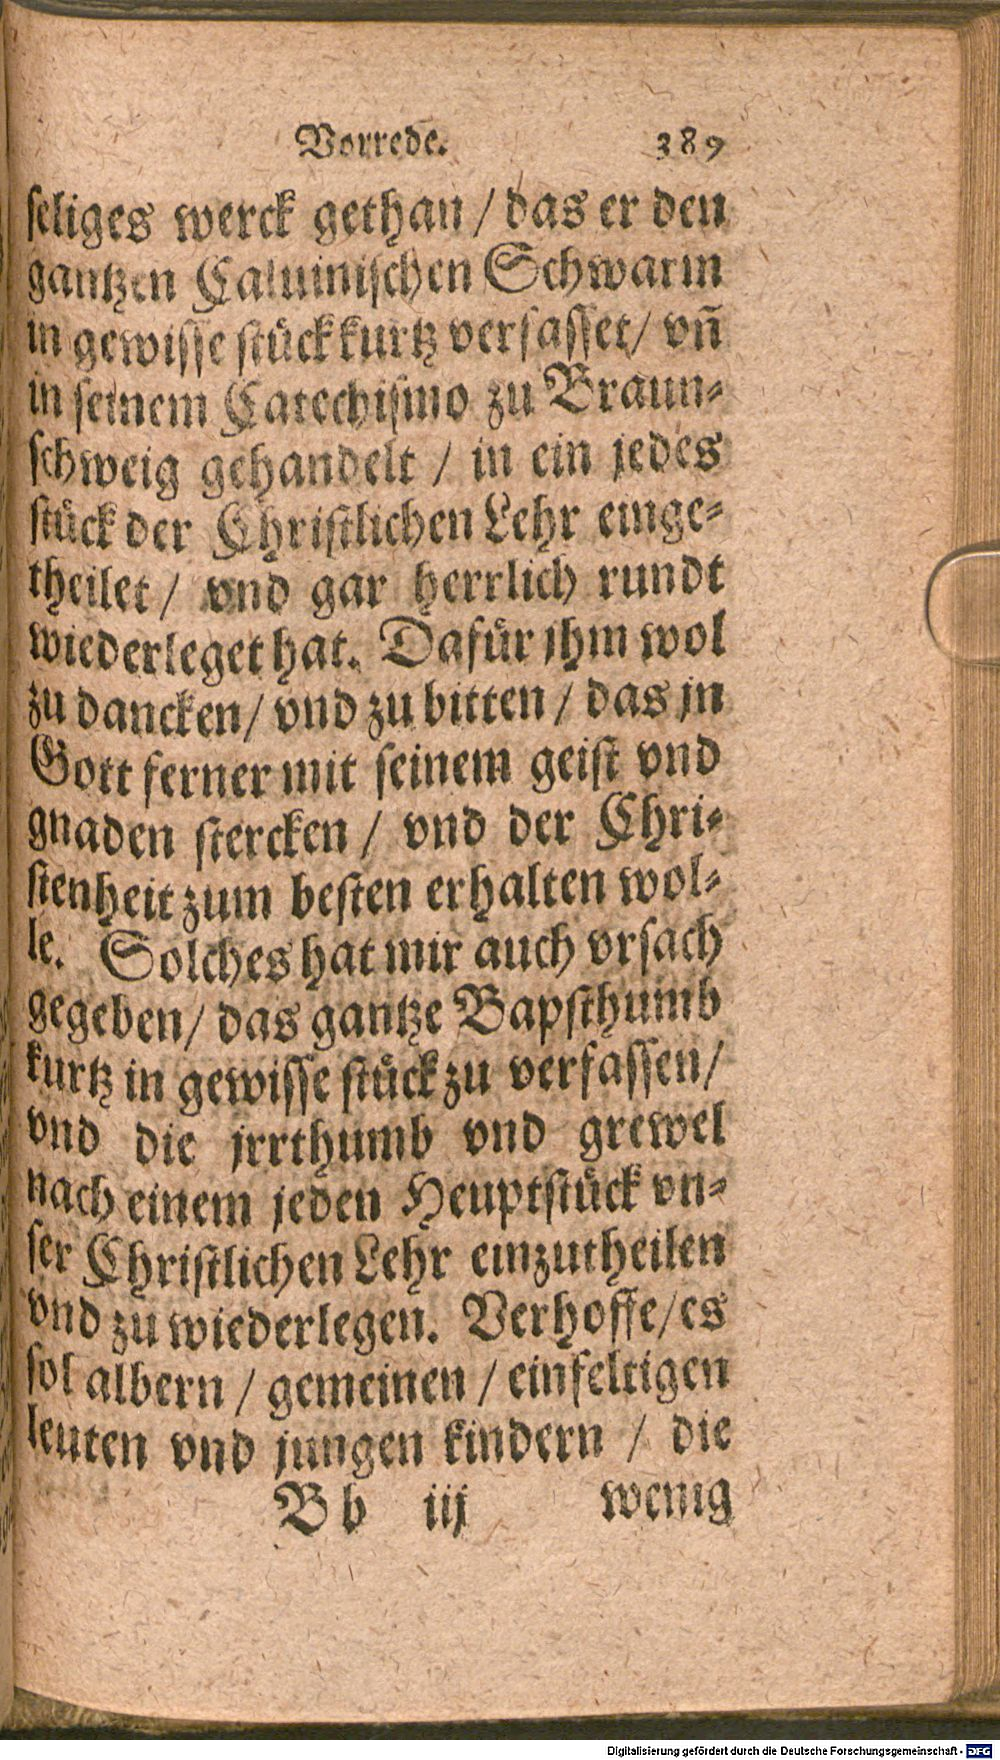 Vorrede. 389
ſeliges werck gethan / das er den
gantzen Caluiniſchen Schwarm
in gewiſſe ſtück kurtz verfaſſet / vn̄
in ſeinem Catechiſmo zu Braun⸗
ſchweig gehandelt / in ein jedes
ſtück der Chriſtlichen Lehr einge⸗
theilet / vnd gar herrlich rundt
wiederleget hat. Dafür jhm wol
zu dancken / vnd zu bitten / das jn
Gott ferner mit ſeinem geiſt vnd
gnaden ſtercken / vnd der Chri⸗
ſtenheit zum beſten erhalten wol⸗
le. Solches hat mir auch vrſach
gegeben / das gantze Bapſthumb
kurtz in gewiſſe ſtück zu verfaſſen /
vnd die jrrthumb vnd grewel
nach einem jeden Heuptſtück vn⸗
ſer Chriſtlichen Lehr einzutheilen
vnd zu wiederlegen. Verhoffe / es
ſol albern / gemeinen / einfeltigen
leuten vnd jungen kindern / die
B b iij wenig
Digitalisierung gefördert durch die Deutsche Forschungsgemeinschaft - DFG